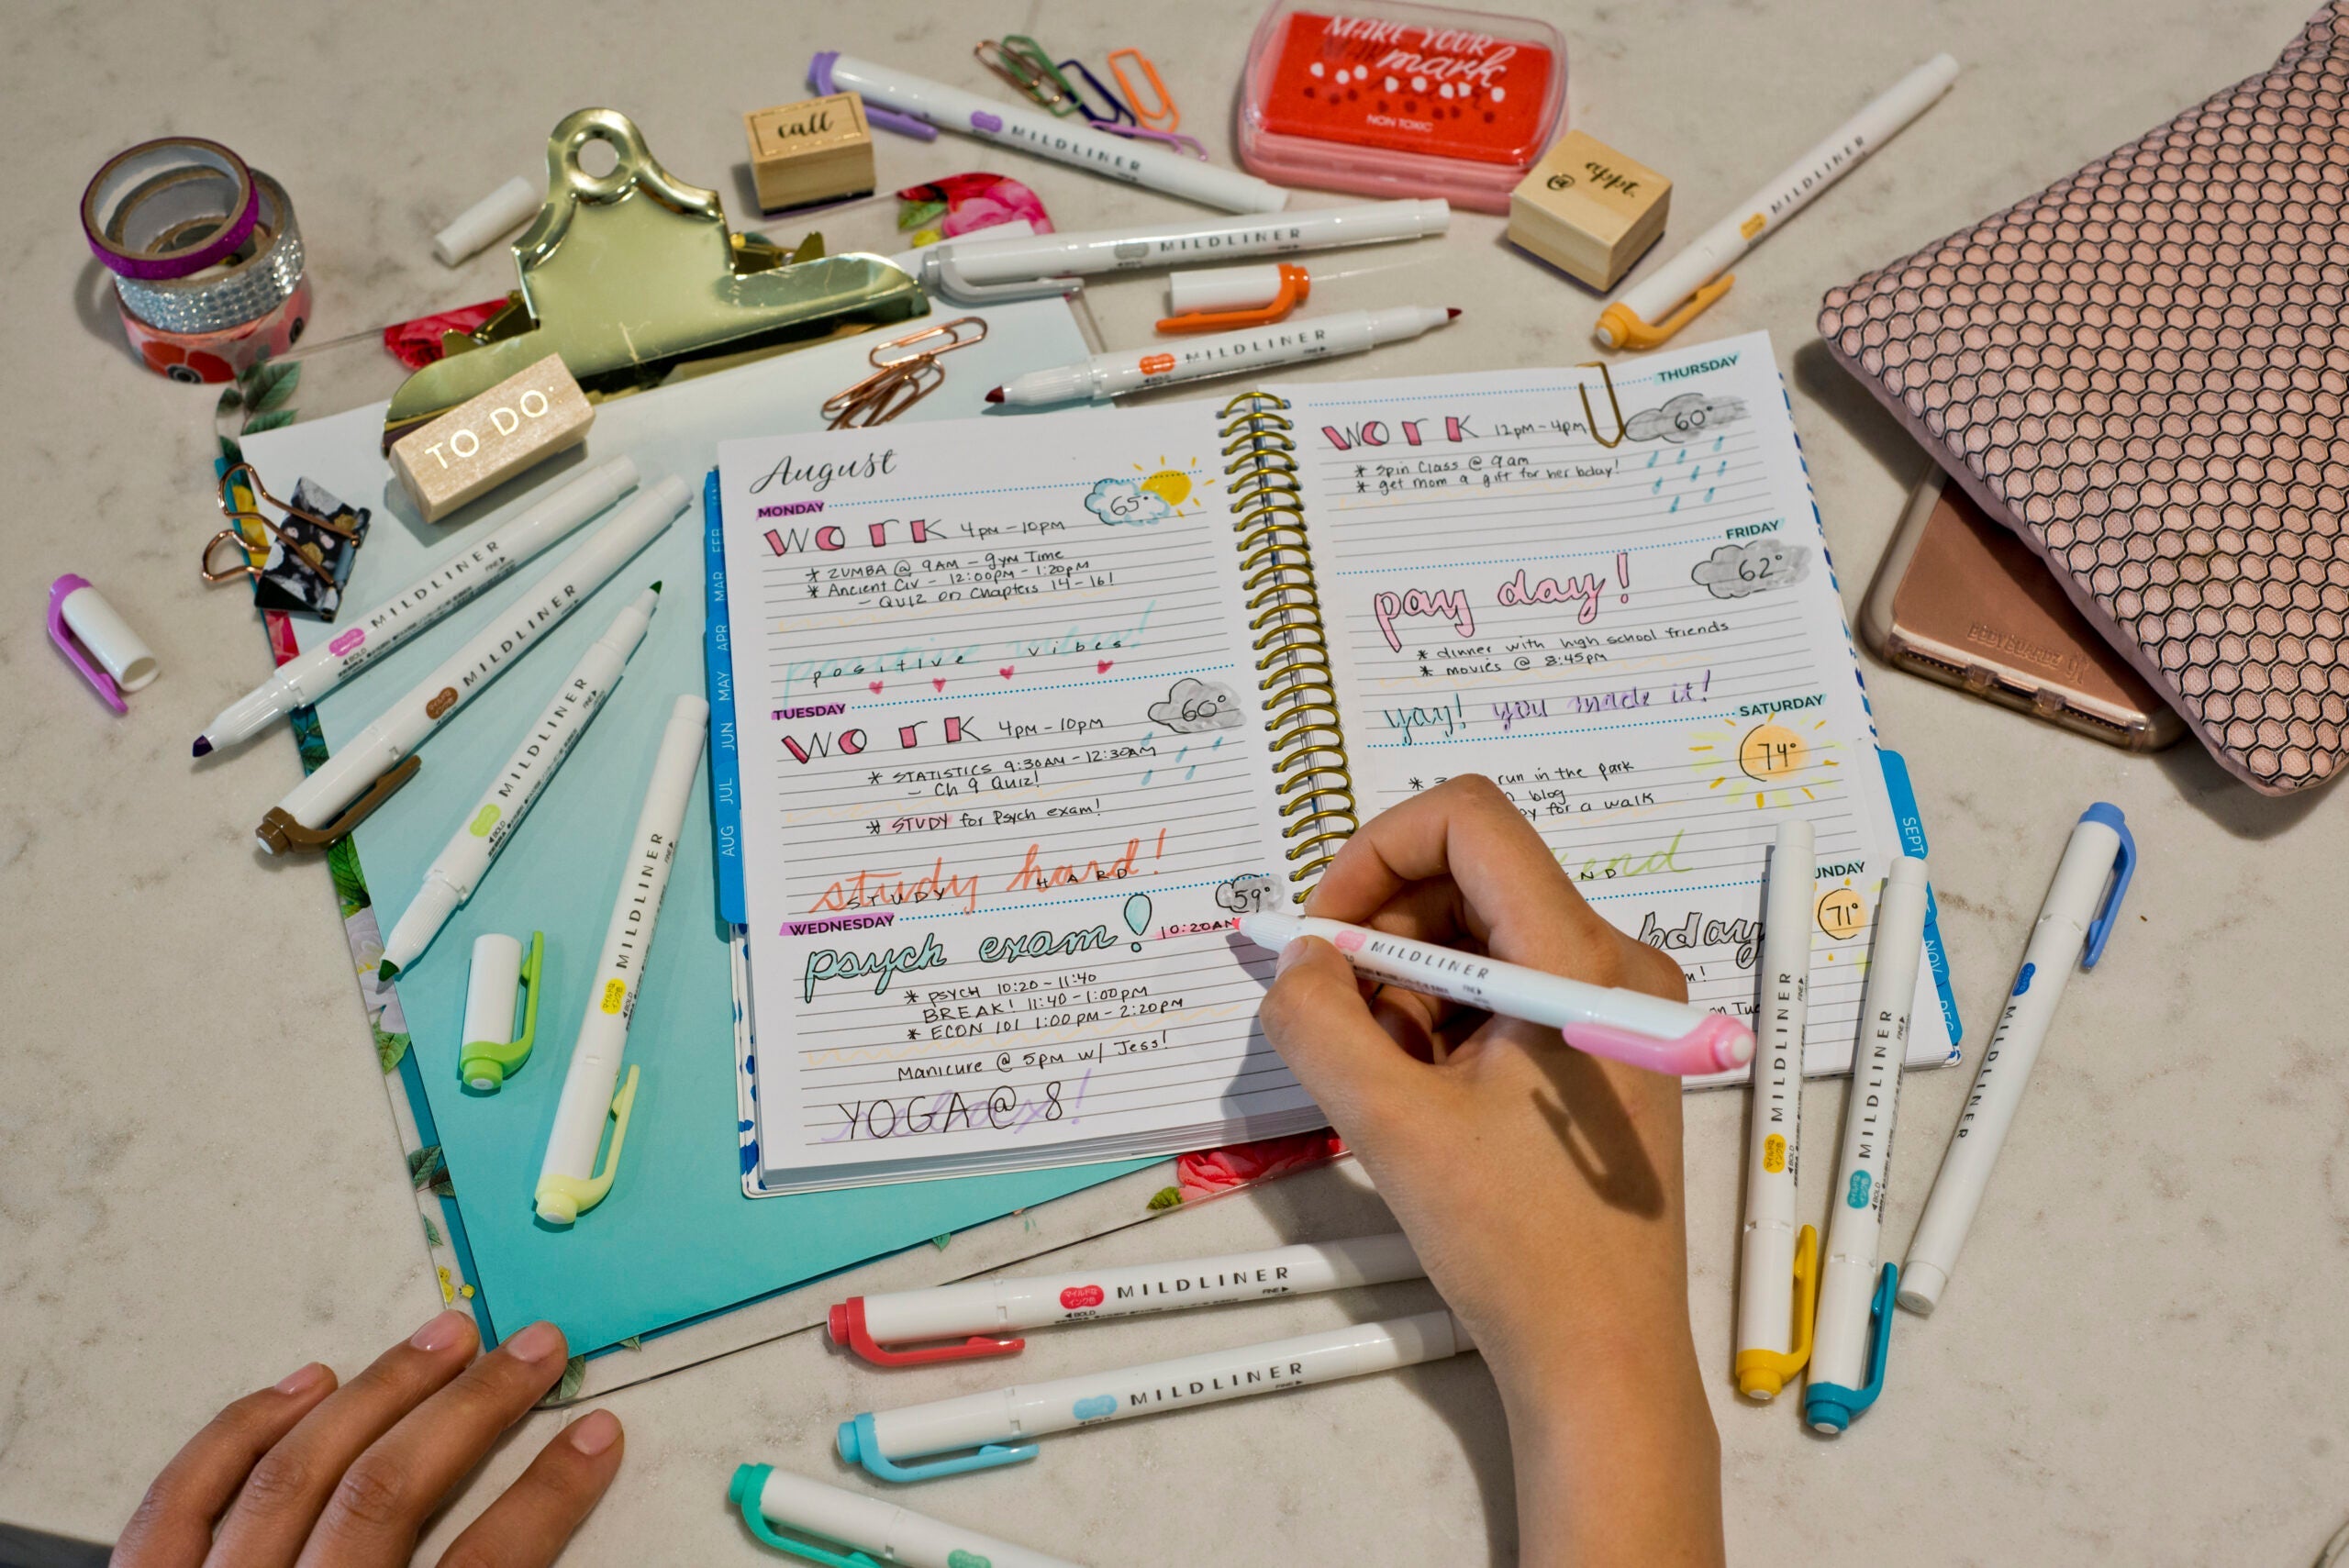 MAKE YOUR
mark
NON TOXIC
call
appt.
@
TO DO
MILDLINER
MILDLINER
MILDLINER
MILDLINER
FINE
August
MONDAY
65°
WORK 4PM - 10PM
* ZUMBA @ 9AM - gym Time
* Ancient Civ - 12:00PM - 1:20PM
- QUIZ on Chapters 14-16!
positive vibes
TUESDAY
60°
WORK 4PM - 10PM
* STATISTICS 9:30AM - 12:30AM
- Ch 9 Quiz!
* STUDY for Psych exam!
study hard!
STUDY HARD
WEDNESDAY
59°
psych exam! 10:20AM
* PSYCH 10:20 - 11:40
BREAK! 11:40 - 1:00PM
* ECON 101 1:00PM - 2:20PM
Manicure @ 5PM w/ Jess!
relax!
YOGA @ 8
THURSDAY
WORK 12pm - 4pm
60°
* Spin Class @ 9am
* get mom a gift for her bday!
FRIDAY
62°
pay day!
* dinner with high school friends
* movies @ 8:45pm
yay! you made it!
SATURDAY
74°
* run in the park
blog
for a walk
end
ND
UNDAY
71°
bday
on Tue
FEB
MAR
APR
MAY
JUN
JUL
AUG
SEPT
NOV
DEC
MILDLINER
BOLD
FINE
MILDLINER
MILDLINER
BOLD
FINE
MILDLINER
FINE
MILDLINER
MILDLINER
マイルドな
インク色
BOLD
FINE
MILDLINER
FINE
MILDLINER
BOLD
FINE
MILDLINER
BOLD
FINE
MILDLINER